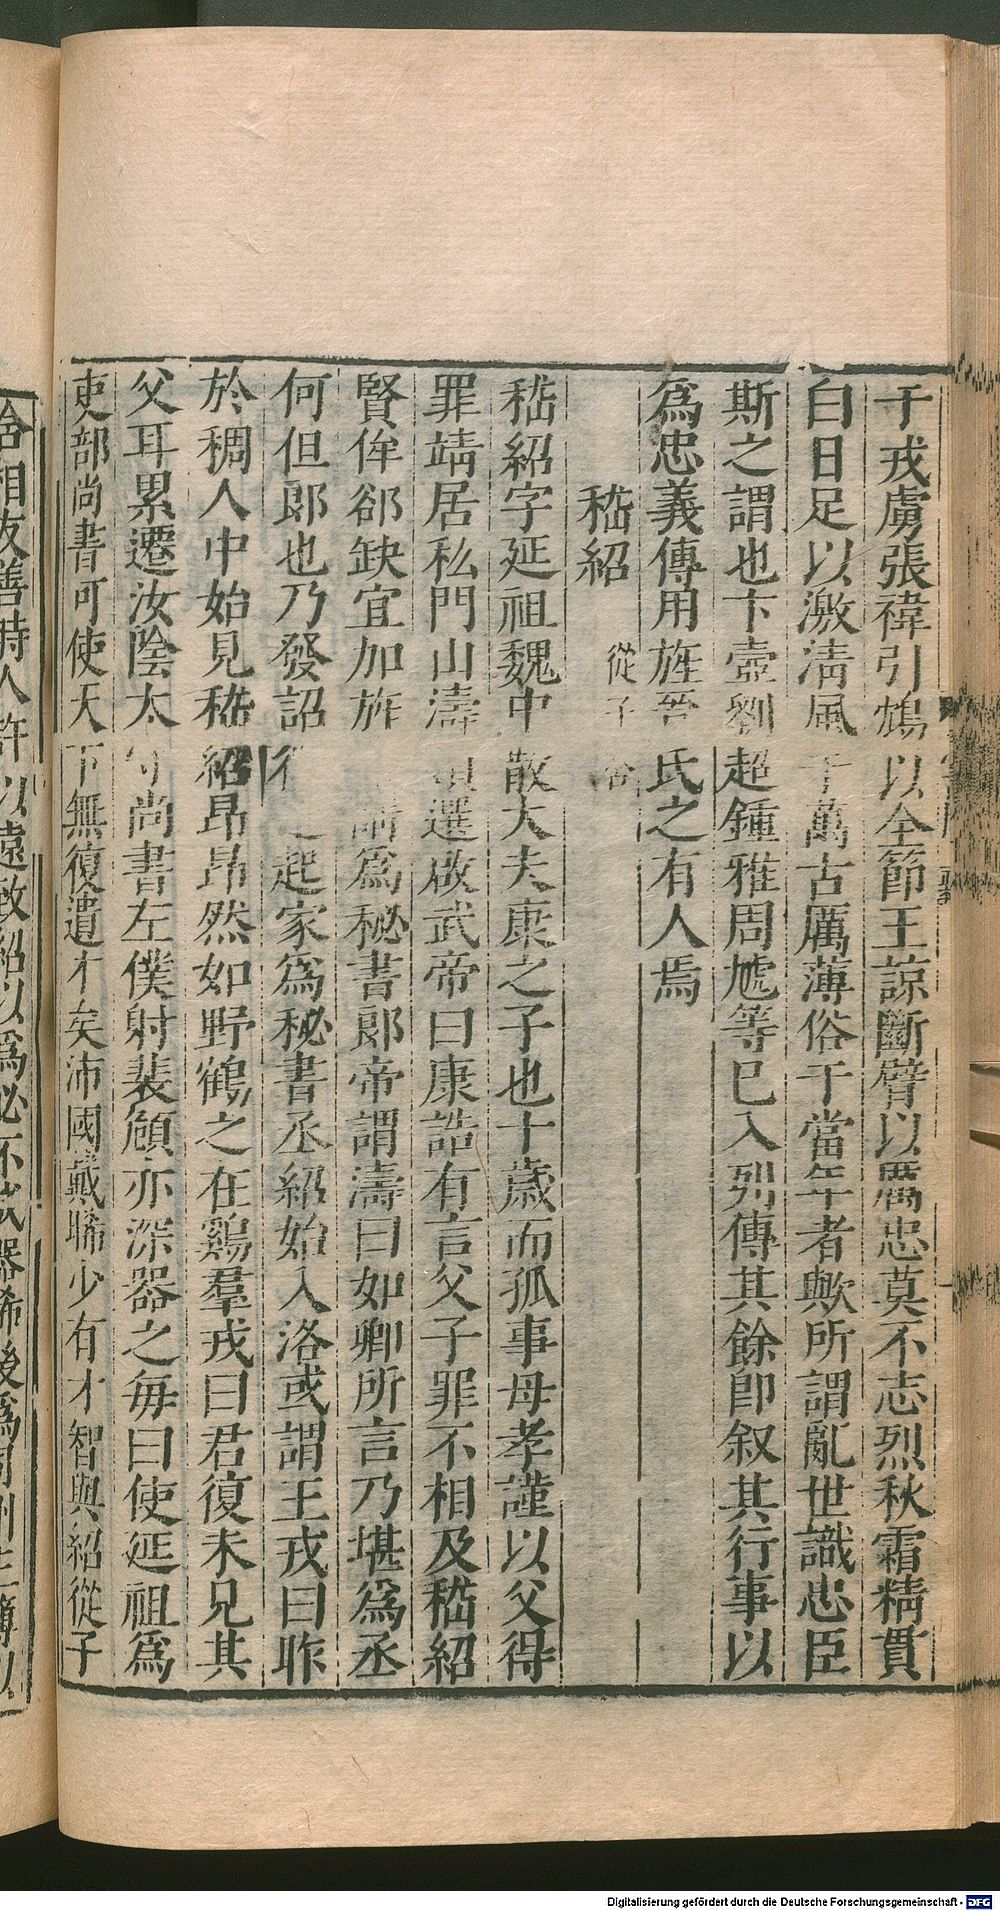 于戎虜張禕引鴆以全節王諒斷臂以厲忠莫不志烈秋霜精貫
白日足以激清風于萬古厲薄俗于當年者歟所謂亂世識忠臣
斯之謂也卞壼劉超鍾雅周虓等已入列傳其餘即叙其行事以
爲忠義傳用旌晉氏之有人焉
嵇紹 從子含
嵇紹字延祖魏中散大夫康之子也十歲而孤事母孝謹以父得
罪靖居私門山濤領選啟武帝曰康誥有言父子罪不相及嵇紹
賢侔郤缺宜加旌請爲秘書郎帝謂濤曰如卿所言乃堪爲丞
何但郎也乃發詔徵之起家爲秘書丞紹始入洛或謂王戎曰昨
於稠人中始見嵇紹昂昂然如野鶴之在鷄羣戎曰君復未見其
父耳累遷汝陰太守尚書左僕射裴頠亦深器之每曰使延祖爲
吏部尚書可使天下無復遺才矣沛國戴晞少有才智與紹從子
含相友善時人許以遠致紹以爲必不成器晞後爲司州主簿以
Digitalisierung gefördert durch die Deutsche Forschungsgemeinschaft - DFG